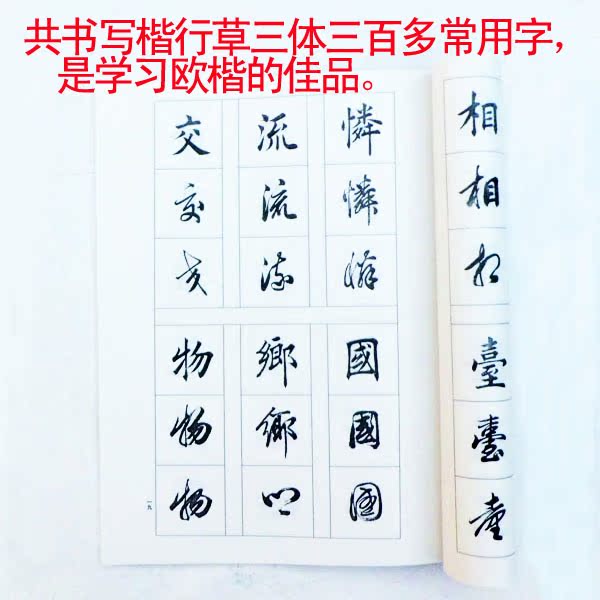 共书写楷行草三体三百多常用字，
是学习欧楷的佳品。
交 流 憐 相
交 流 憐 相
交 流 憐 相
物 鄉 國 臺
物 鄉 國 臺
物 鄉 國 臺
一九